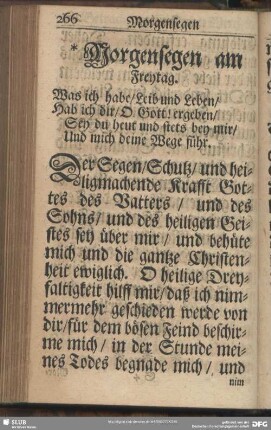 266 Morgensegen
* Morgensegen am
Freytag.
Was ich habe/ Leib und Leben/
Hab ich dir/ O Gott! ergeben/
Sey du heut und stets bey mir/
Und mich deine Wege führ.
Der Segen/ Schutz/ und hei-
ligmachende Krafft Got-
tes des Vatters/ und des
Sohns/ und des heiligen Gei-
stes sey über mir/ und behüte
mich und die gantze Christen-
heit ewiglich. O heilige Drey-
faltigkeit hilff mir/ daß ich nim-
mermehr geschieden werde von
dir/ für dem bösen Feind beschir-
me mich/ in der Stunde mei-
nes Todes begnade mich/ und
nim
SLUB